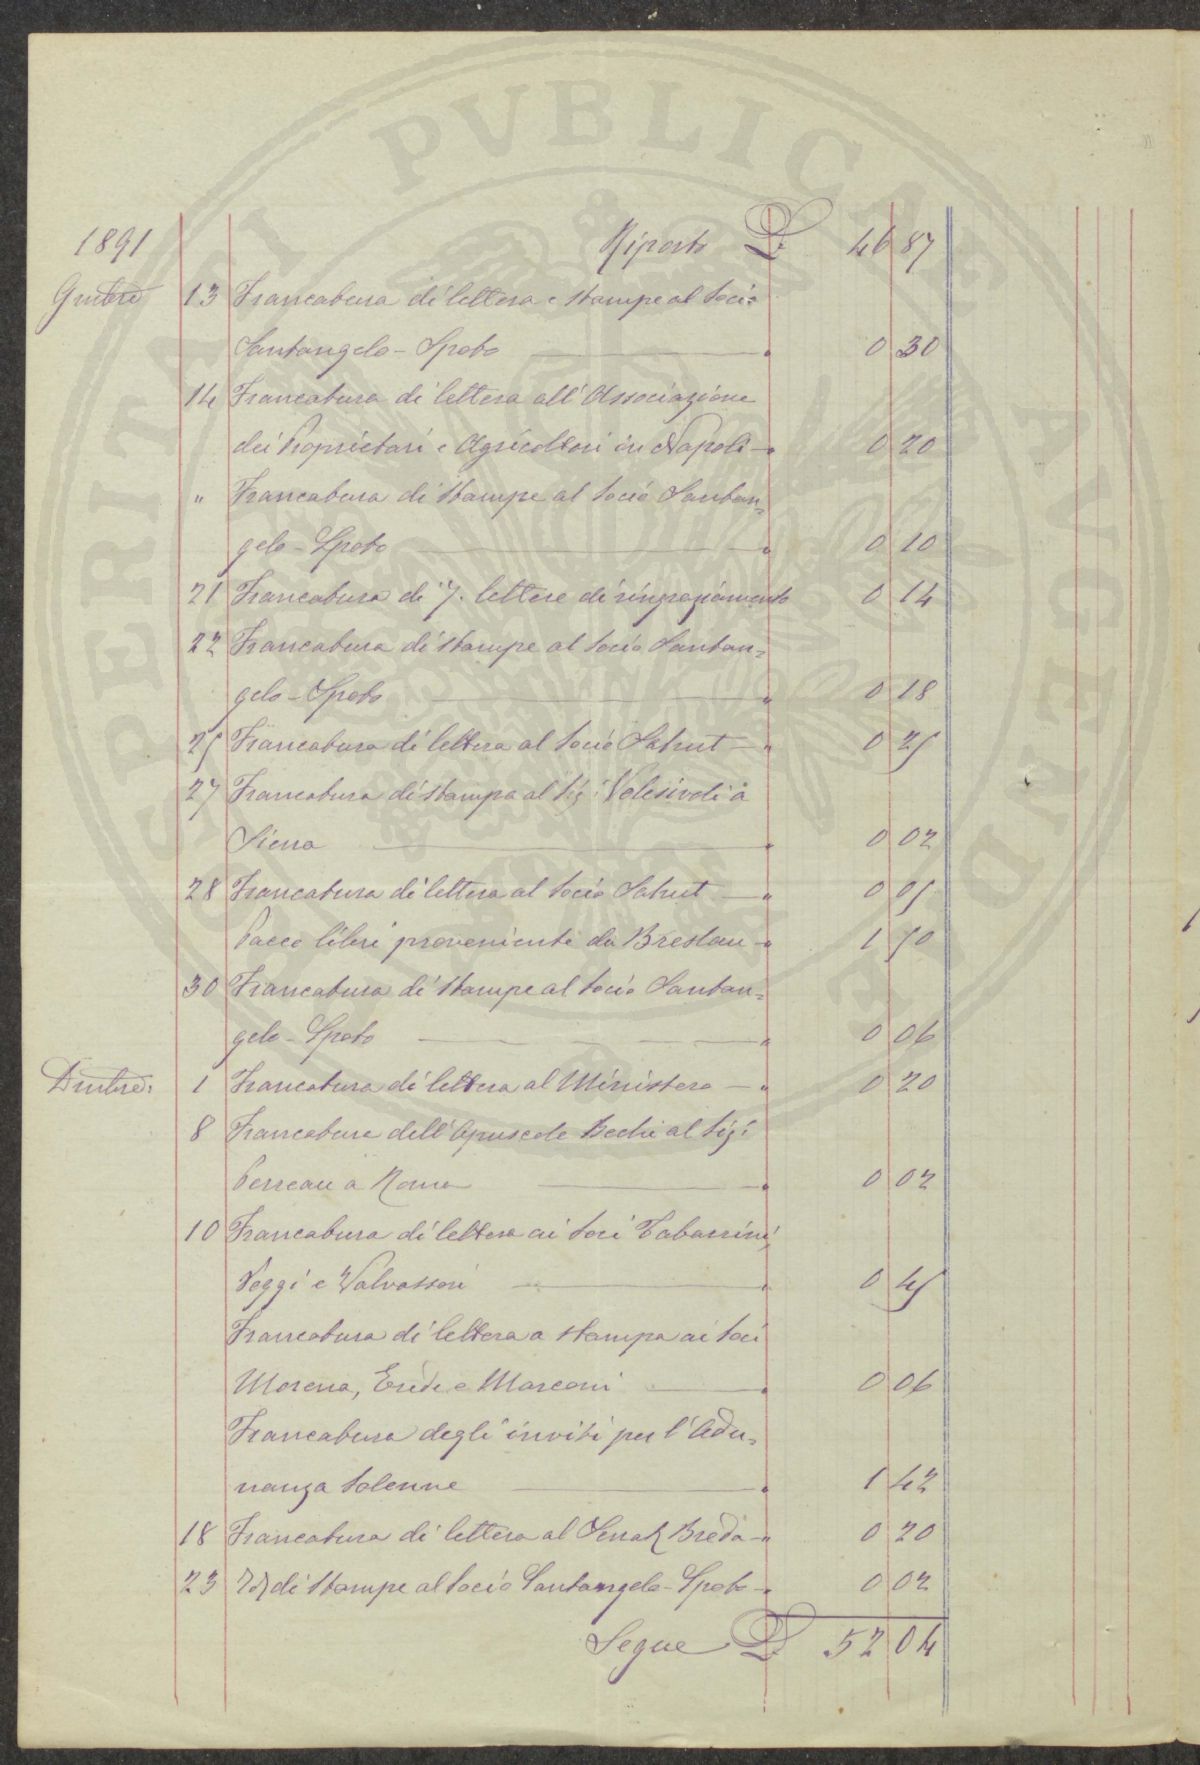 1891 Riporto L. 46 87
13 Francatura di lettera e stampe al Socio
Santangelo-Spoto — " 0 30
14 Francatura di lettera all'Associazione
dei Proprietari e Agricoltori in Napoli — " 0 20
" Francatura di stampe al Socio Santan=
gelo-Spoto — " 0 10
21 Francatura di 7. lettere di ringraziamento 0 14
22 Francatura di stampe al Socio Santan=
gelo-Spoto — " 0 18
25 Francatura di lettera al Socio Sahut — " 0 25
27 Francatura di stampa al Sig: a
Siena — " 0 02
28 Francatura di lettera al Socio Sahut — " 0 05
Pacco libri proveniente da Breslau — " 1 50
30 Francatura di stampe al Socio Santan=
gelo-Spoto — " 0 06
Dmbre: 1 Francatura di lettera al Ministero — " 0 20
8 Francatura dell'Opuscolo Bechi al Sig:
Perreau a Roma — " 0 02
10 Francatura di lettera ai Soci Tabarrini,
Poggi e Valvassori — " 0 45
Francatura di lettera a stampa ai Soci
Morena, Erède e Marconi — " 0 06
Francatura degli inviti per l'Adu=
nanza Solenne — " 1 42
18 Francatura di lettera al Senat. Breda — " 0 20
23 Id. di stampe al Socio Santangelo-Spoto — " 0 02
Segue L. 52 04
PROSPERITATI PVBLICAE AVGENDAE